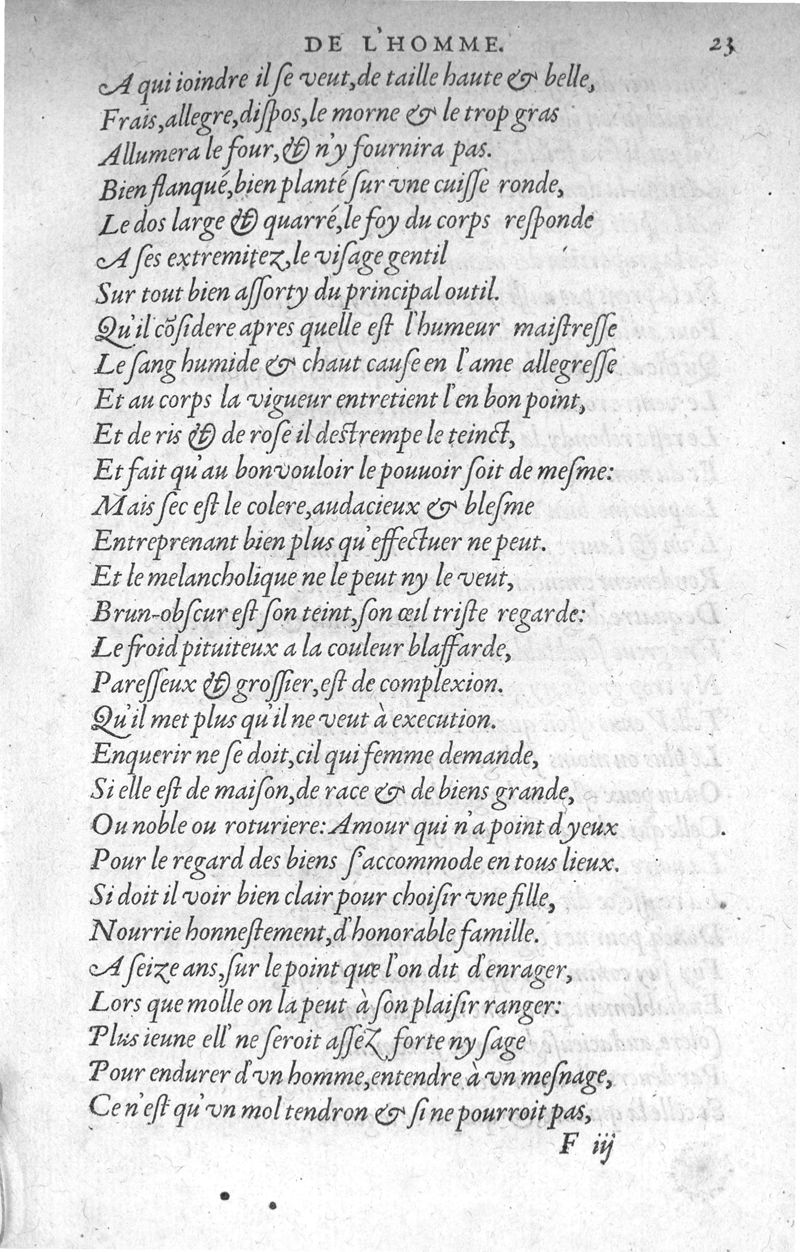 DE L'HOMME. 23
A qui ioindre il se veut, de taille haute & belle,
Frais, allegre, dispos, le morne & le trop gras
Allumera le four, & n'y fournira pas.
Bien flanqué, bien planté sur vne cuisse ronde,
Le dos large & quarré, le foy du corps responde
A ses extremitez, le visage gentil
Sur tout bien assorty du principal outil.
Qu'il cõsidere apres quelle est l'humeur maistresse
Le sang humide & chaut cause en l'ame allegresse
Et au corps la vigueur entretient l'en bon point,
Et de ris & de rose il destrempe le teinct,
Et fait qu'au bon vouloir le pouuoir soit de mesme:
Mais sec est le colere, audacieux & blesme
Entreprenant bien plus qu'effectuer ne peut.
Et le melancholique ne le peut ny le veut,
Brun-obscur est son teint, son œil triste regarde:
Le froid pituiteux a la couleur blaffarde,
Paresseux & grossier, est de complexion.
Qu'il met plus qu'il ne veut à execution.
Enquerir ne se doit, cil qui femme demande,
Si elle est de maison, de race & de biens grande,
Ou noble ou roturiere: Amour qui n'a point d'yeux
Pour le regard des biens s'accommode en tous lieux.
Si doit il voir bien clair pour choisir vne fille,
Nourrie honnestement, d'honorable famille.
A seize ans, sur le point que l'on dit d'enrager,
Lors que molle on la peut à son plaisir ranger:
Plus ieune ell' ne seroit assez forte ny sage
Pour endurer d'vn homme, entendre à vn mesnage,
Ce n'est qu'vn mol tendron & si ne pourroit pas,
F iij